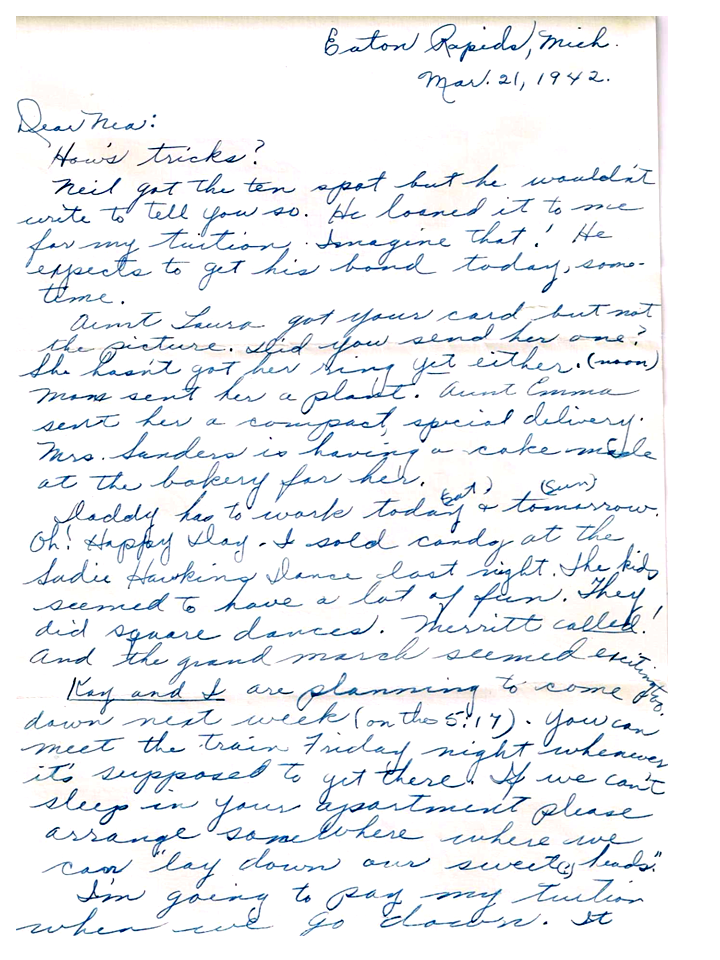 Eaton Rapids, Mich.
Mar. 21, 1942.
Dear Nea:
How's tricks?
Neil got the ten spot but he wouldn't
write to tell you so. He loaned it to me
for my tuition. Imagine that! He
expects to get his bond today, some-
time.
Aunt Laura got your card but not
the picture. Did you send her one?
She hasn't got her ring yet either. (noon)
Mom sent her a plant. Aunt Emma
sent her a compact, special delivery.
Mrs. Sanders is having a cake made
at the bakery for her.
(Sat) (Sun)
Daddy has to work today & tomorrow.
Oh! Happy Day. I sold candy at the
Sadie Hawkins Dance last night. The kids
seemed to have a lot of fun. They
did square dances. Merritt called!
And the grand march seemed exciting too.
Kay and I are planning to come
down next week (on the 5:17). You can
meet the train Friday night whenever
it's supposed to get there. If we can't
sleep in your apartment please
arrange somewhere where we
can "lay down our sweet(?) heads".
I'm going to pay my tuition
when we go down. It